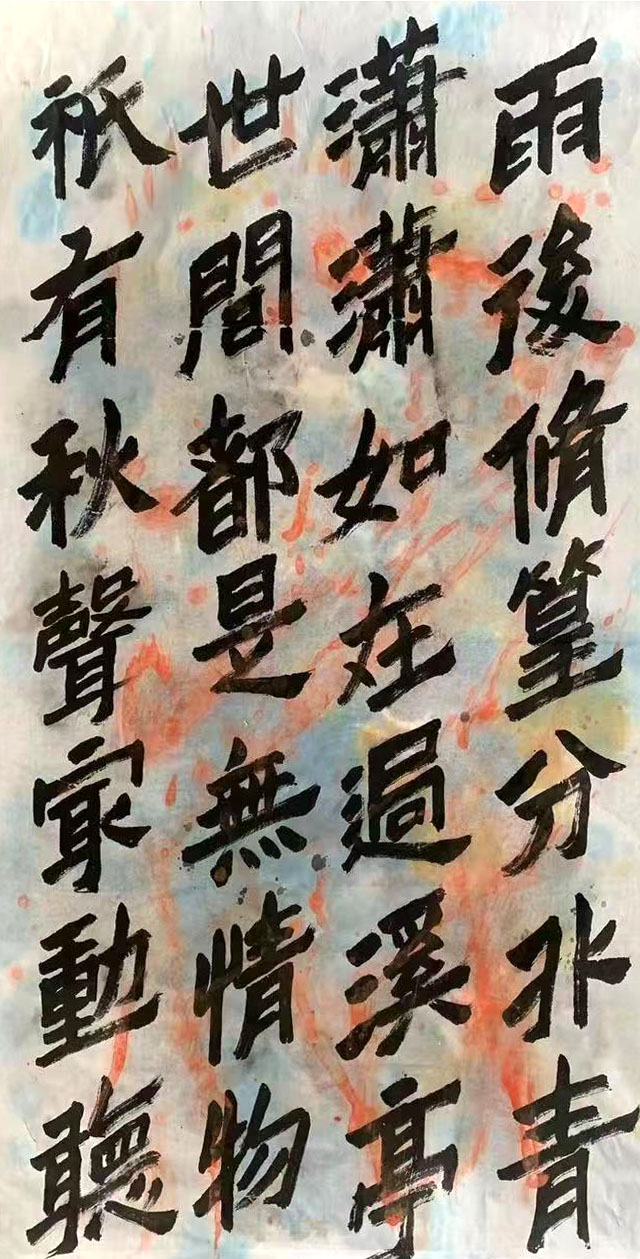 雨後脩篁分外青
瀟瀟如在過溪亭
世間都是無情物
祇有秋聲㝡動聽